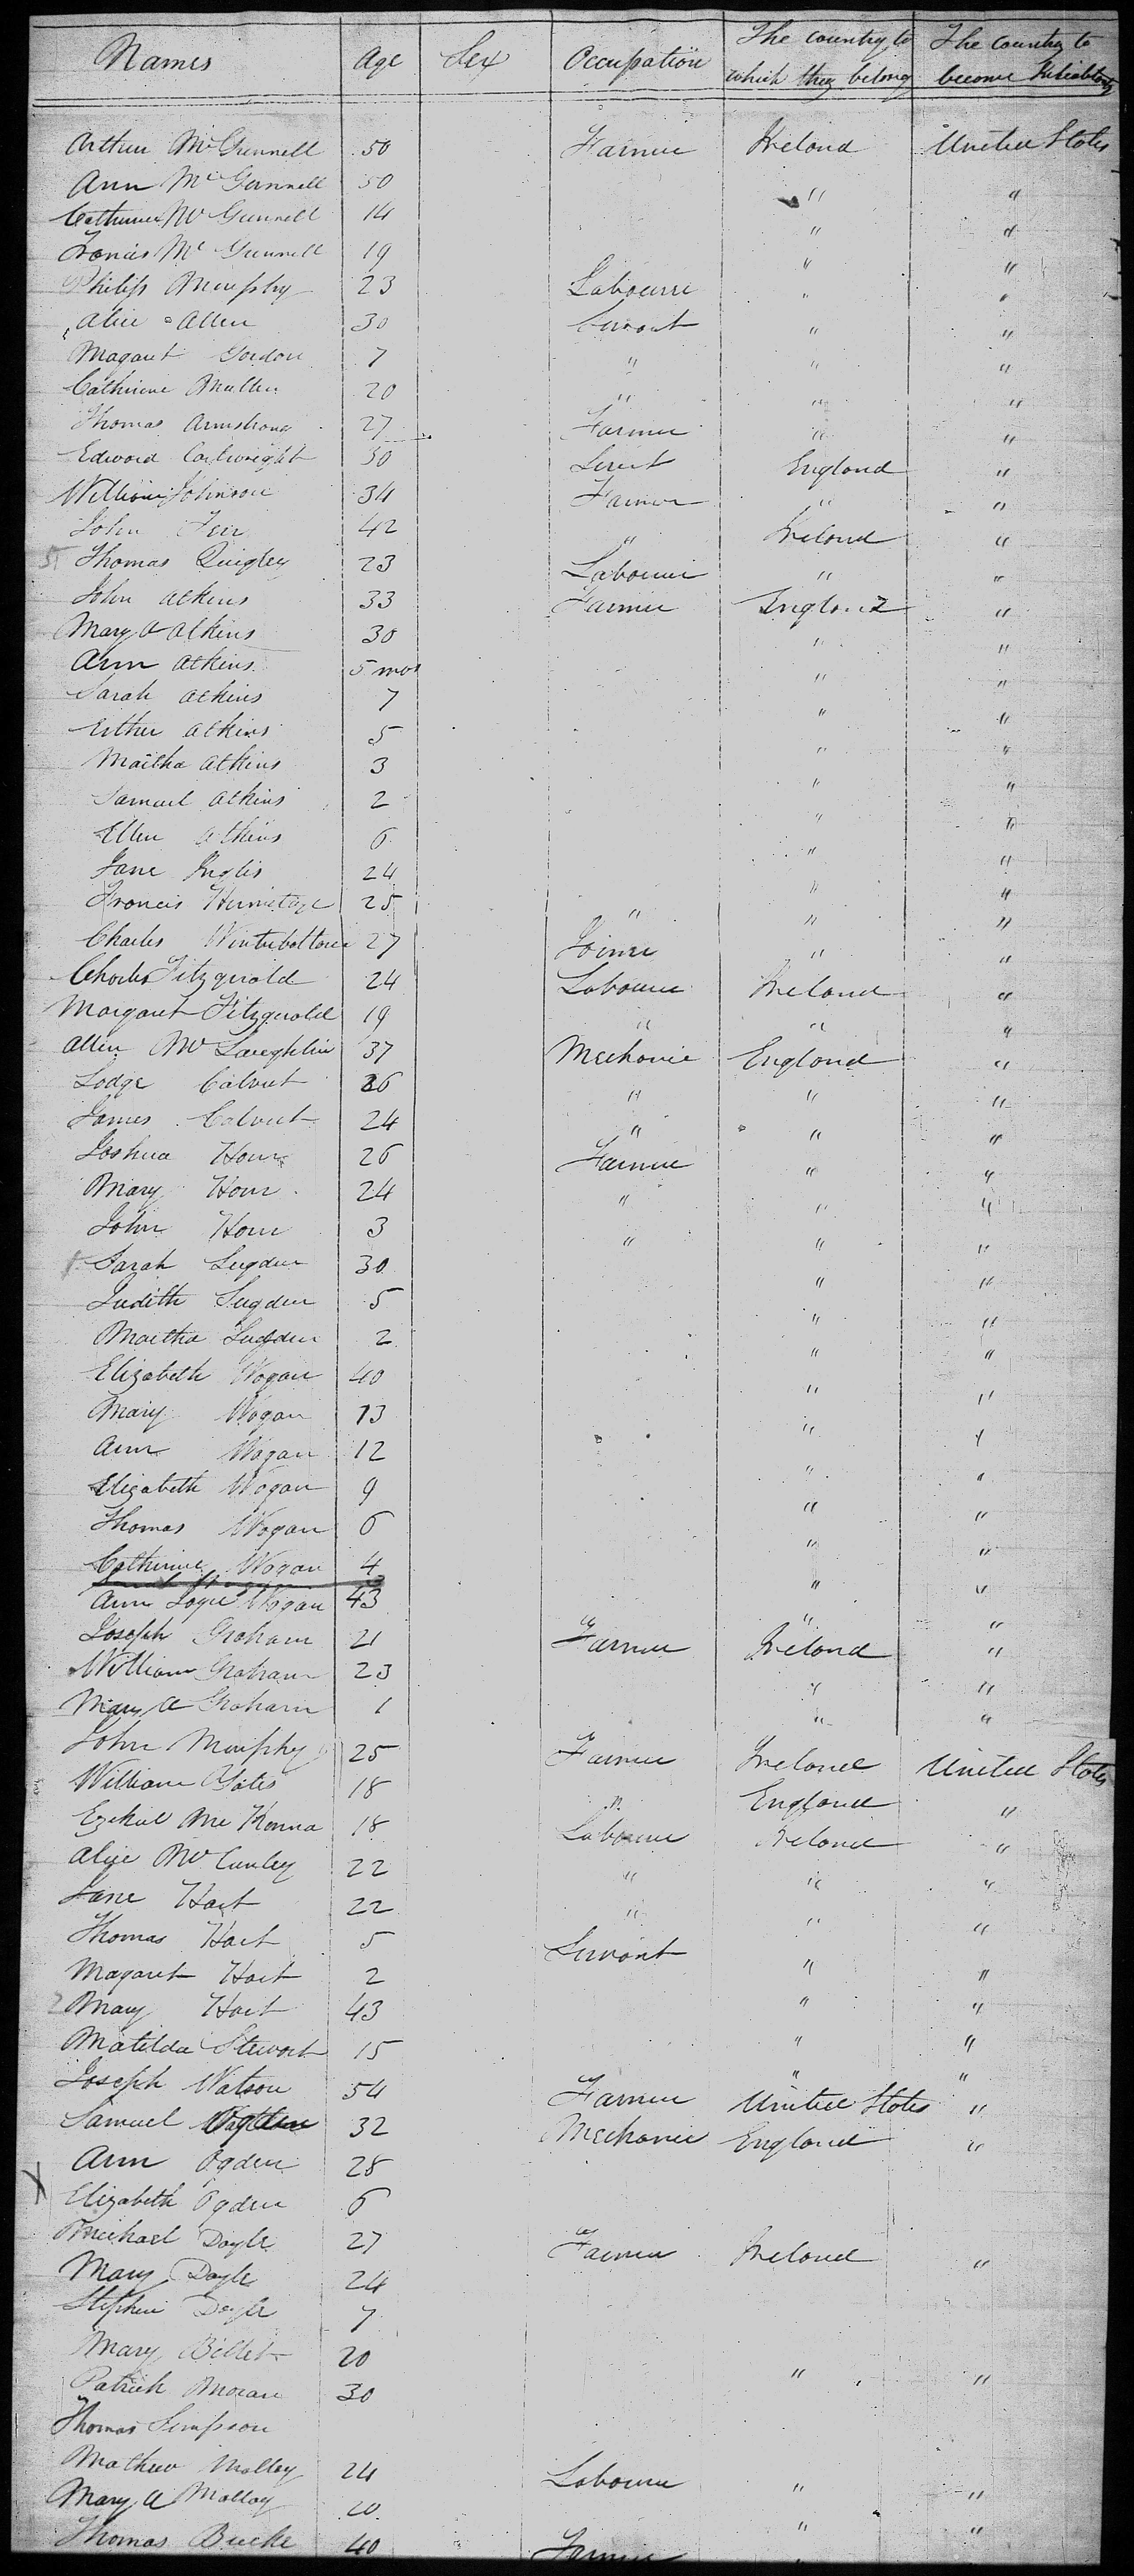 Names Age Sex Occupation The country to which they belong The country to become Inhabitants
Arthur McGunnell 50 Farmer Ireland United States
Ann McGunnell 50 " "
Catherine McGunnell 14 " "
Francis McGunnell 19 " "
Philip Murphy 23 Labourer " "
Alice Allen 30 Servant " "
Magaret Gordon 7 " " "
Catherine Mullen 20 " " "
Thomas Armstrong 27 Farmer " "
Edward Cartwright 30 England "
William Johnson 34 Farmer " "
John 42 " Ireland "
Thomas Quigley 23 Labourer " "
John Atkins 33 Farmer England "
Mary A Atkins 30 " "
Ann Atkins 5 mos " "
Sarah Atkins 7 " "
Esther Atkins 5 " "
Martha Atkins 3 " "
Samuel Atkins 2 " "
Ellen Atkins 6 " "
Jane Inglis 24 " "
Francis Hermitage 25 " " "
Charles Winterbottom 27 Joiner " "
Charles Fitzgerald 24 Labourer Ireland "
Margaret Fitzgerald 19 " " "
Allen McLaughlin 37 Mechanic England "
Lodge Calvert 26 " " "
James Calvert 24 " " "
Joshua 26 Farmer " "
Mary 24 " " "
John 3 " " "
Sarah Sugden 30 " "
Judith Sugden 5 " "
Martha Sugden 2 " "
Elizabeth Wogan 40 " "
Mary Wogan 13 " "
Ann Wogan 12 " "
Elizabeth Wogan 9 " "
Thomas Wogan 6 " "
Catherine Wogan 4 " "
Ann Wogan 43 " "
Joseph Graham 21 Farmer Ireland "
William Graham 23 " "
Mary A Graham 1 " "
John Murphy 25 Farmer Ireland United States
William Yates 18 " England "
Ezekiel McKenna 18 Labourer Ireland "
Alice McCunley 22 " " "
Jane Hart 22 " " "
Thomas Hart 5 Servant " "
Magaret Hart 2 " "
Mary Hart 43 " "
Matilda Stewart 15 " "
Joseph Watson 54 Farmer United States "
Samuel Ogden 32 Mechanic England "
Ann Ogden 28
Elizabeth Ogden 6
Michael Doyle 27 Farmer Ireland "
Mary Doyle 24
Stephen Doyle 7
Mary Billet 20 " "
Patrick Moran 30
Thomas Simpson
Mathew Molloy 24 Labourer " "
Mary A Molloy 20 " "
Thomas Burke 40 Farmer "